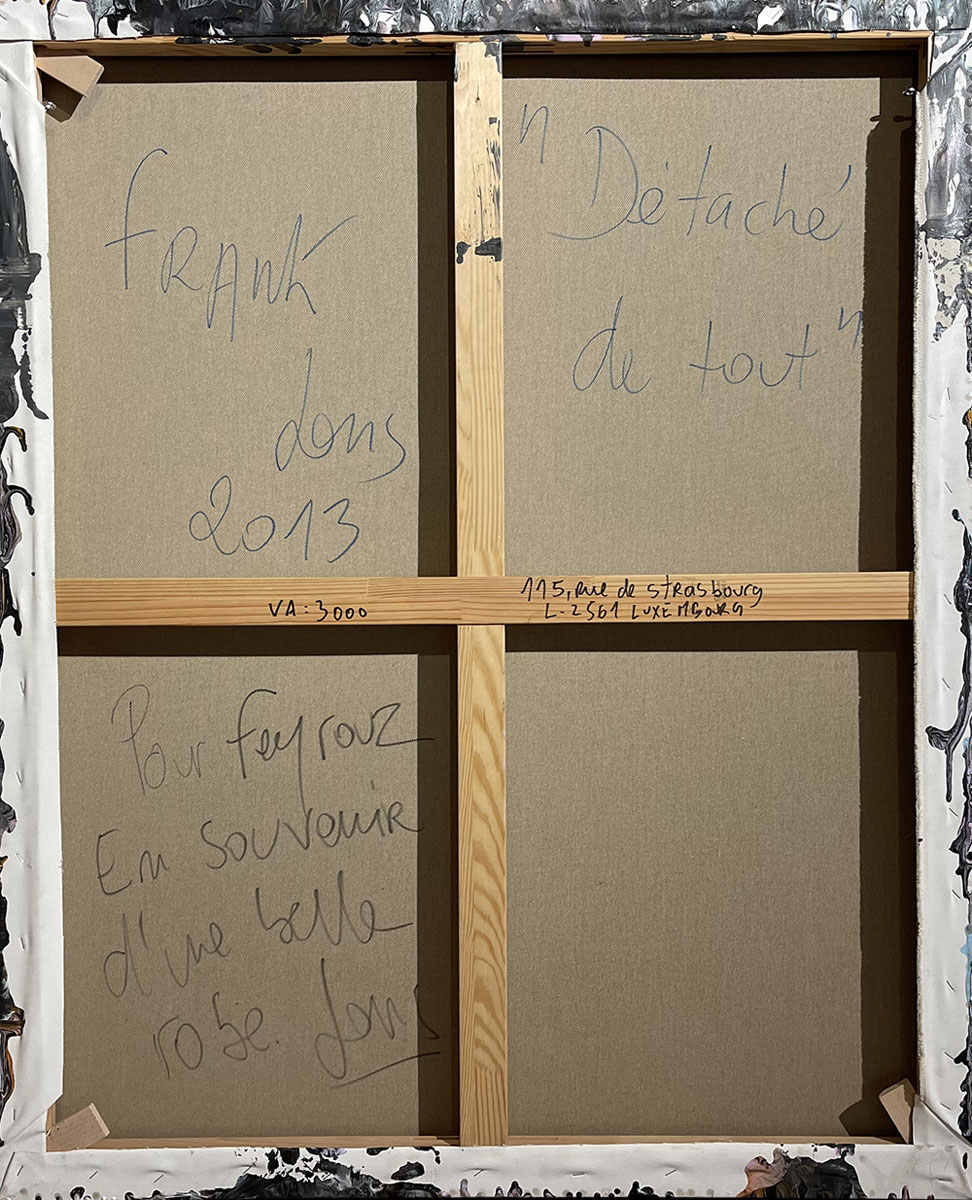 FRANK
Jons
2013
"Détaché
de tout"
VA: 3000
115, rue de Strasbourg
L-2561 LUXEMBOURG
Pour Feyrouz
En souvenir
d'une belle
robe. Jons